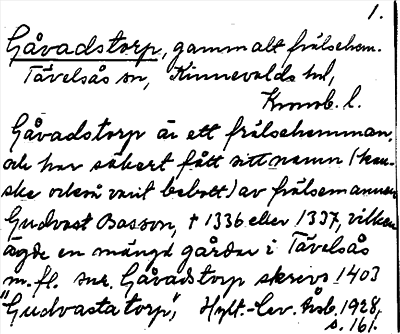 1.
Gåvadstorp, gammalt frälsehem.
Tävelsås sn, Kinnevalds hd,
Kronob. l.
Gåvadstorp är ett frälsehemman,
och har säkert fått sitt namn (kan-
ske också varit bebott) av frälsemannen
Gudvast Basson, † 1336 eller 1337, vilken
ägde en mängd gårdar i Tävelsås
m. fl. snr. Gåvadstorp skrivs 1403
"Gudvasta torp", Hylt.-Cav. årsb. 1928,
s. 161.